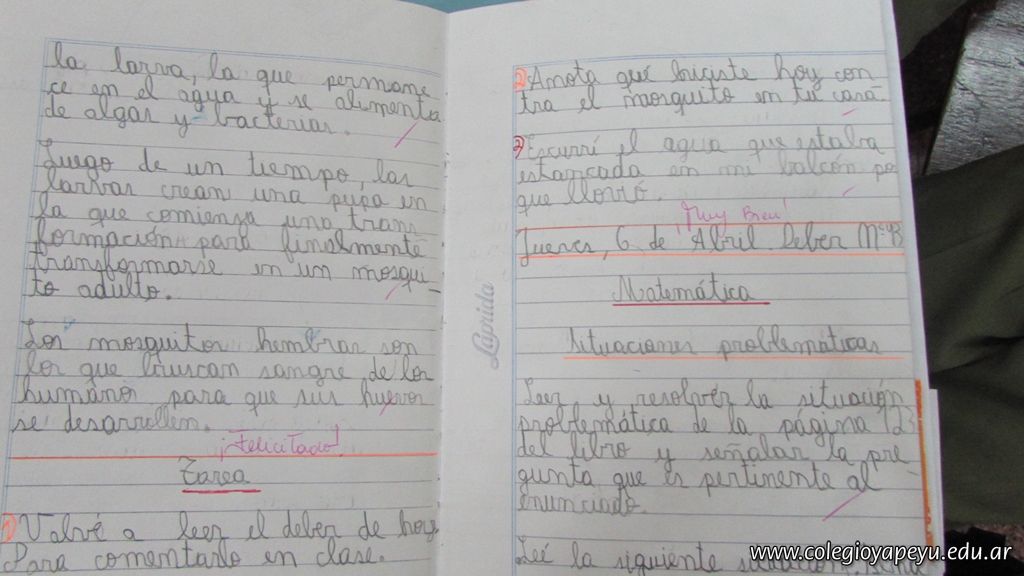 la larva, la que permane
ce en el agua y se alimenta
de algas y bacterias.
Luego de un tiempo, las
larvas crean una pupa en
la que comiensa una trans
formación para finalmente
transformarse en un mosqui-
to adulto.
Los mosquitos hembras son
los que buscan sangre de los
humano para que sus huevos
se desarrollen.
¡Felicitado!
Tarea
1) Volvé a leer el deber de hoy
Para comentarlo en clase.
2) Anota qué hiciste hoy con
tra el mosquito en tu casa
Escurrí el agua que estaba
estancada en mi balcón por
que llovió.
¡Muy Bien!
Jueves, 6 de Abril Deber Nº
Matemática
Situaciones problemáticas
Leer y resolver la situación
problemática de la página 123
del libro y señalar la pre-
gunta que es pertinente al
enunciado.
Leé la siguiente situación
Lápida
www.colegioyapeyu.edu.ar